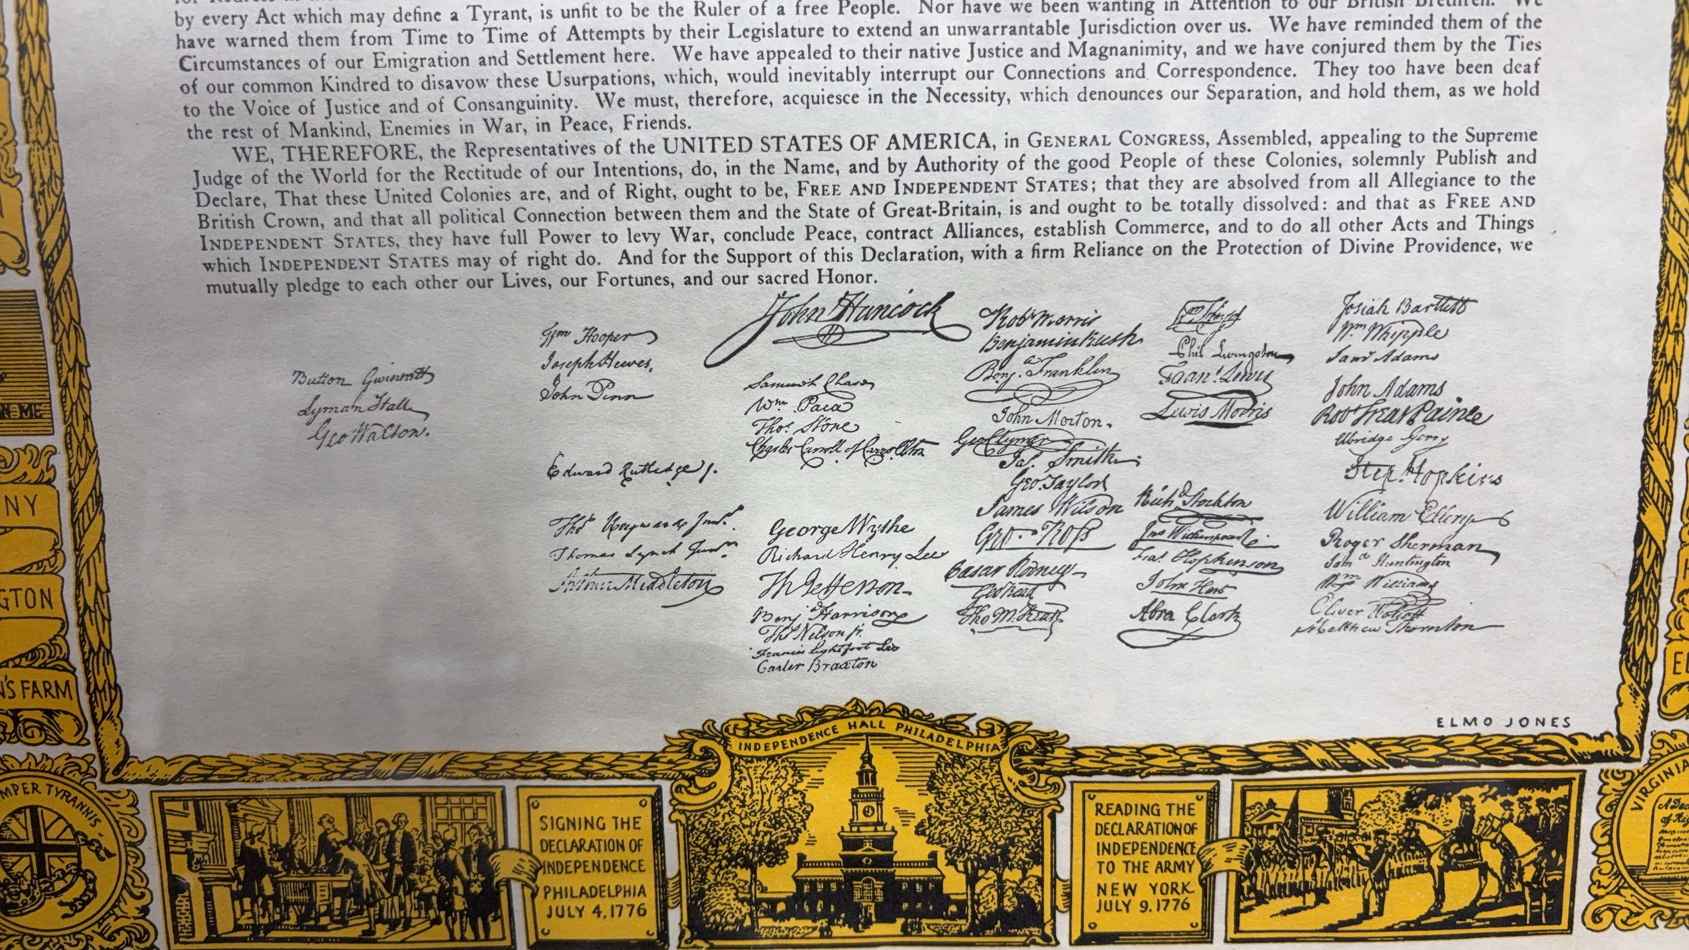 by every Act which may define a Tyrant, is unfit to be the Ruler of a free People. Nor have we been wanting in Attention to our British Brethren. We
have warned them from Time to Time of Attempts by their Legislature to extend an unwarrantable Jurisdiction over us. We have reminded them of the
Circumstances of our Emigration and Settlement here. We have appealed to their native Justice and Magnanimity, and we have conjured them by the Ties
of our common Kindred to disavow these Usurpations, which, would inevitably interrupt our Connections and Correspondence. They too have been deaf
to the Voice of Justice and of Consanguinity. We must, therefore, acquiesce in the Necessity, which denounces our Separation, and hold them, as we hold
the rest of Mankind, Enemies in War, in Peace, Friends.
WE, THEREFORE, the Representatives of the UNITED STATES OF AMERICA, in GENERAL CONGRESS, Assembled, appealing to the Supreme
Judge of the World for the Rectitude of our Intentions, do, in the Name, and by Authority of the good People of these Colonies, solemnly Publish and
Declare, That these United Colonies are, and of Right, ought to be, FREE AND INDEPENDENT STATES; that they are absolved from all Allegiance to the
British Crown, and that all political Connection between them and the State of Great-Britain, is and ought to be totally dissolved: and that as FREE AND
INDEPENDENT STATES, they have full Power to levy War, conclude Peace, contract Alliances, establish Commerce, and to do all other Acts and Things
which INDEPENDENT STATES may of right do. And for the Support of this Declaration, with a firm Reliance on the Protection of Divine Providence, we
mutually pledge to each other our Lives, our Fortunes, and our sacred Honor.
Button Gwinnett
Lyman Hall
Geo Walton.
Wm Hooper
Joseph Hewes,
John Penn
Edward Rutledge /.
Thos Heyward Junr.
Thomas Lynch Junr.
Arthur Middleton
John Hancock
Samuel Chase
Wm. Paca
Thos. Stone
Charles Carroll of Carrollton
George Wythe
Richard Henry Lee
Th Jefferson
Benj Harrison
Thos Nelson jr.
Francis Lightfoot Lee
Carter Braxton
Robt Morris
Benjamin Rush
Benj. Franklin
John Morton.
Geo Clymer
Jas. Smith
Geo. Taylor
James Wilson
Geo. Ross
Caesar Rodney
Geo Read
Tho M:Kean
Wm Floyd
Phil. Livingston
Frans. Lewis
Lewis Morris
Richd Stockton
Jno Witherspoon
Fras. Hopkinson
John Hart
Abra Clark
Josiah Bartlett
Wm Whipple
Saml Adams
John Adams
Robt Treat Paine
Elbridge Gerry
Step. Hopkins
William Ellery
Roger Sherman
Samel Huntington
Wm Williams
Oliver Wolcott
Matthew Thornton
ELMO JONES
NY
GTON
N'S FARM
MPER TYRANNIS
SIGNING THE
DECLARATION OF
INDEPENDENCE
PHILADELPHIA
JULY 4, 1776
INDEPENDENCE HALL PHILADELPHIA
READING THE
DECLARATION OF
INDEPENDENCE
TO THE ARMY
NEW YORK
JULY 9, 1776
VIRGINIA